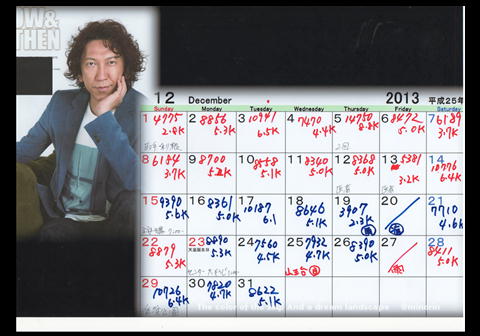 NOW&
THEN
12 December 2013 平成25年
Sunday Monday Tuesday Wednesday Thursday Friday Saturday
1 4775 2 8856 3 10941 4 7470 5 14750 6 8472 7 6189
2.8K 5.3K 6.5K 4.4K 8.8K 5.0K 3.7K
2回
8 6184 9 8700 10 8558 11 8340 12 8368 13 5381 14 10776
3.7K 5.2K 5.1K 5.0K 5.0K 3.2K 6.4K
15 9390 16 8361 17 10187 18 8646 19 3907 20 21 7710
5.6K 5.0K 6.1 5.1K 2.3K 4.6K
22 8879 23 8890 24 7560 25 7932 26 8390 27 28 8411
5.3K 天皇誕生日 5.3K 4.5K 4.7K 5.0K 5.0K
29 10726 30 7820 31 8622
6.4K 4.7K 5.1K